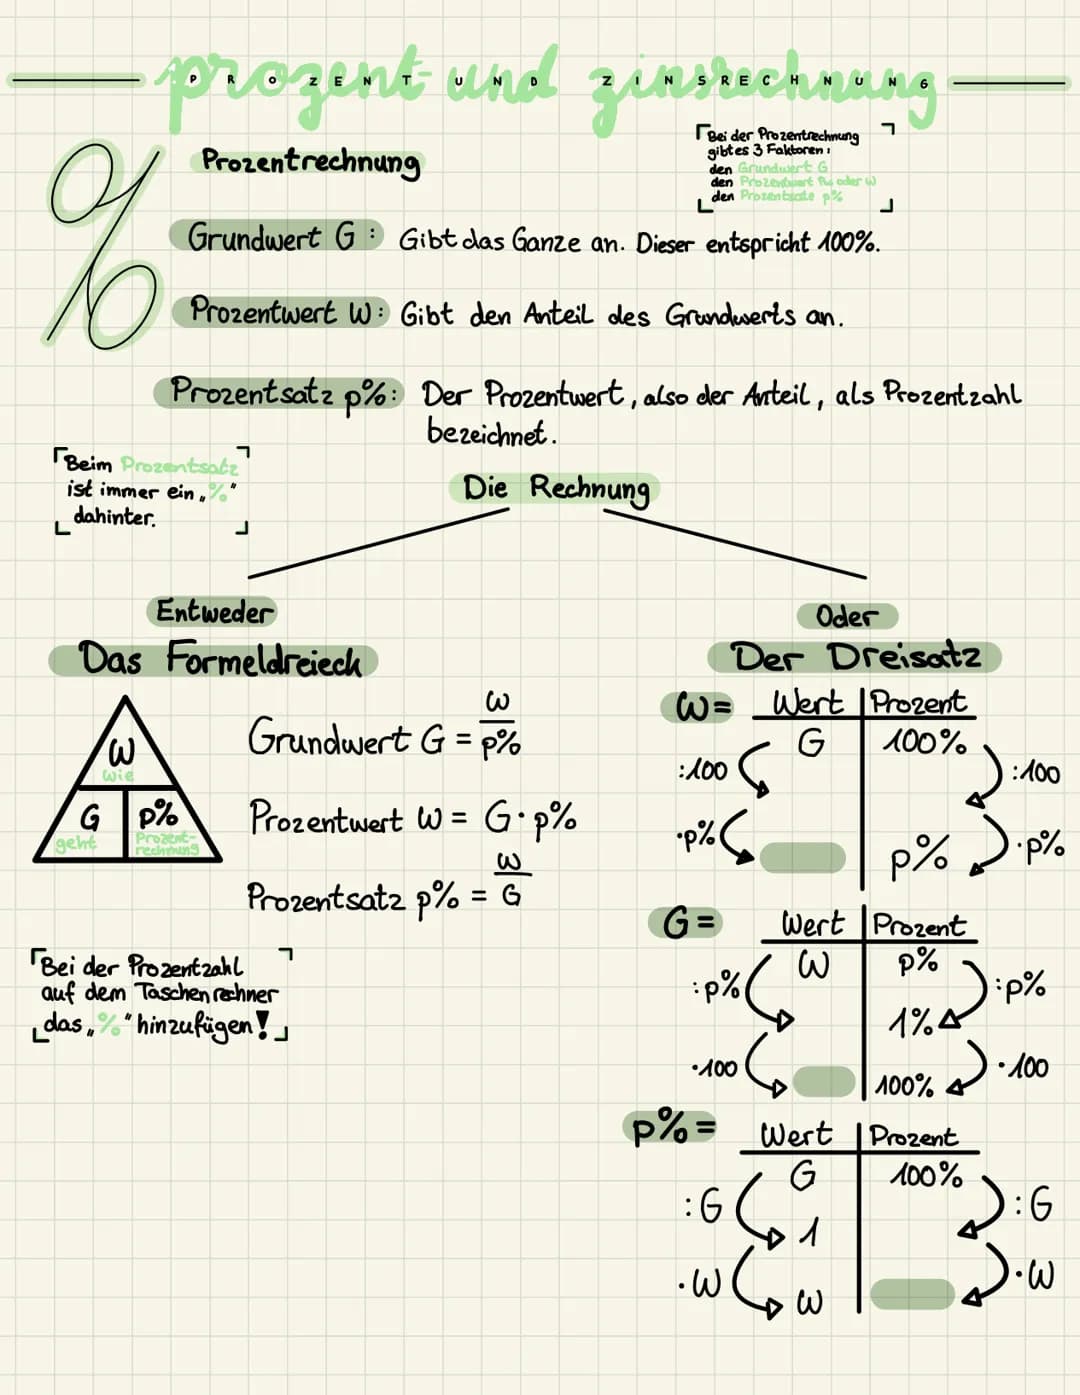 prozent- und zinsrechnung
PROZENT UND ZINSRECHNUNG
Prozentrechnung
Bei der Prozentrechnung
gibt es 3 Faktoren:
den Grundwert G
den Prozentwert Pw oder W
den Prozentsatz p%
Grundwert G: Gibt das Ganze an. Dieser entspricht 100%.
Prozentwert W: Gibt den Anteil des Grundwerts an.
Prozentsatz p%: Der Prozentwert, also der Anteil, als Prozentzahl
bezeichnet.
Beim Prozentsatz
ist immer ein „%“
dahinter.
Die Rechnung
Entweder
Das Formeldreieck
W
wie
G
geht
p%
Prozent-
rechnung
Grundwert G = W/p%
Prozentwert W = G · p%
Prozentsatz p% = W/G
Bei der Prozentzahl
auf dem Taschenrechner
das „%“ hinzufügen!
Oder
Der Dreisatz
W= Wert Prozent
G 100%
:100 :100
·p% p% ·p%
G= Wert Prozent
W p%
:p% :p%
1%
·100 ·100
100%
p%= Wert Prozent
G 100%
:G :G
1
·W ·W
W